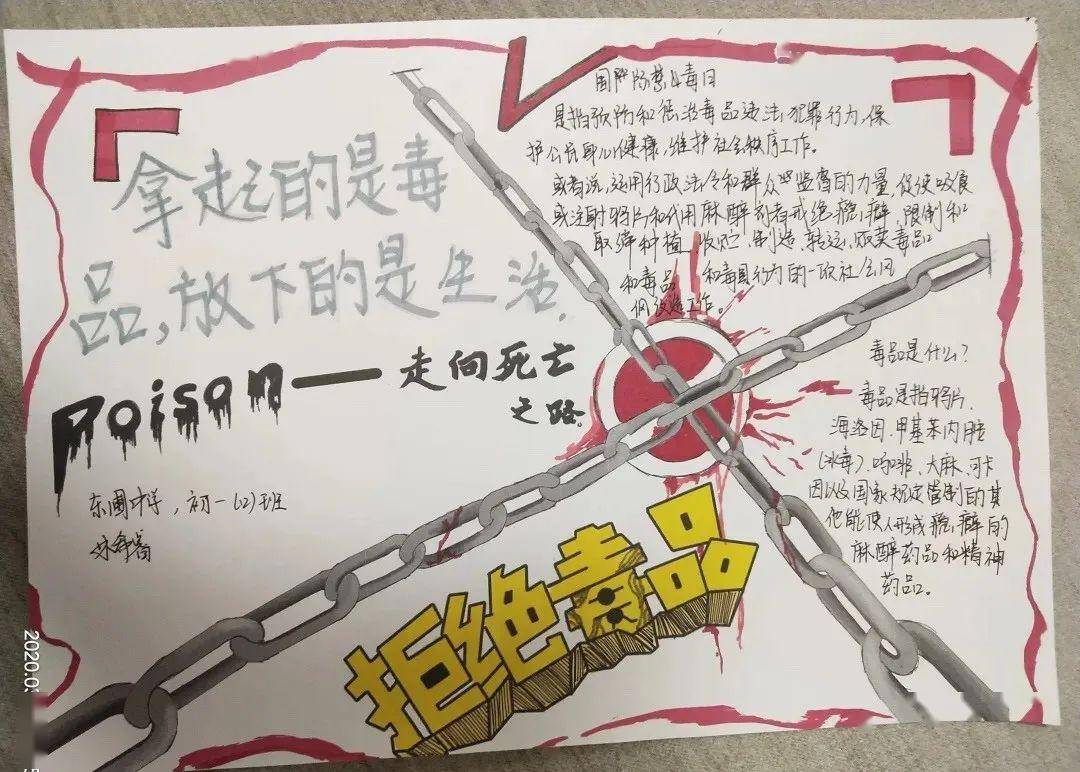 拿起的是毒
品,放下的是生活.
Poison——走向死亡
之路.
东圃中学,初一(2)班
国际禁毒日
是指预防和惩治毒品违法犯罪行为,保
护公民身心健康,维护社会秩序工作。
或者说,运用行政法令和群众监督的力量,促使吸食
或注射鸦片和代用麻醉剂者戒绝瘾癖,限制和
取缔种植、收贮、制造、转运、贩卖毒品
和毒品 和毒具行为的一项社会风
俗改造工作。
毒品是什么?
毒品是指鸦片、
海洛因、甲基苯丙胺
(冰毒)、吗啡、大麻、可卡
因以及国家规定管制的其
他能使人形成瘾癖的
麻醉药品和精神
药品。
拒绝毒品
2020.0